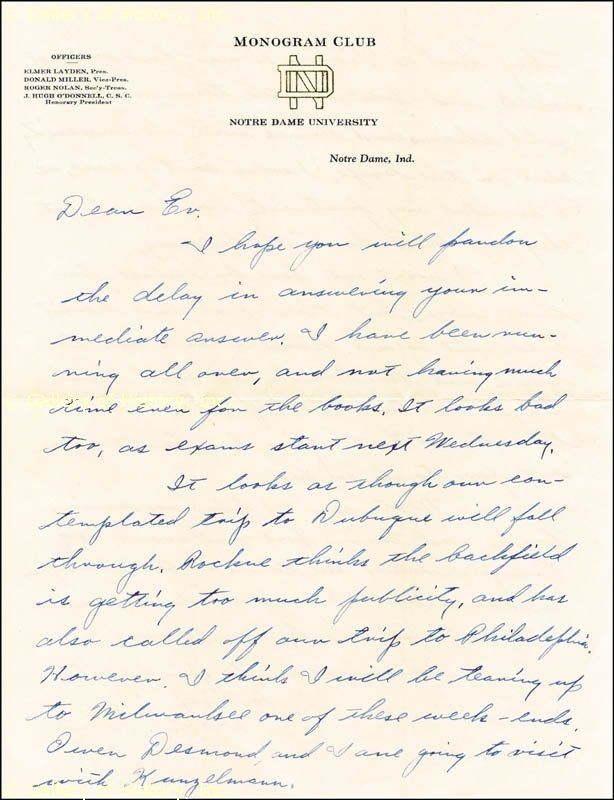 A Gallery of History, Inc.
MONOGRAM CLUB
OFFICERS
ELMER LAYDEN, Pres.
DONALD MILLER, Vice-Pres.
ROGER NOLAN, Sec'y-Treas.
J. HUGH O'DONNELL, C. S. C.
Honorary President
ND
NOTRE DAME UNIVERSITY
Notre Dame, Ind.
Dear Ev.
I hope you will pardon
the delay in answering your im-
mediate answer. I have been run-
ning all over, and not having much
time even for the books. It looks bad
too, as exams start next Wednesday.
It looks as though our con-
templated trip to Dubuque will fall
through. Rockne thinks the backfield
is getting too much publicity, and has
also called off our trip to Philadelphia.
However, I think I will be tearing up
to Milwaukee one of these week-ends.
Owen Desmond and I are going to visit
with Kunzelmann.